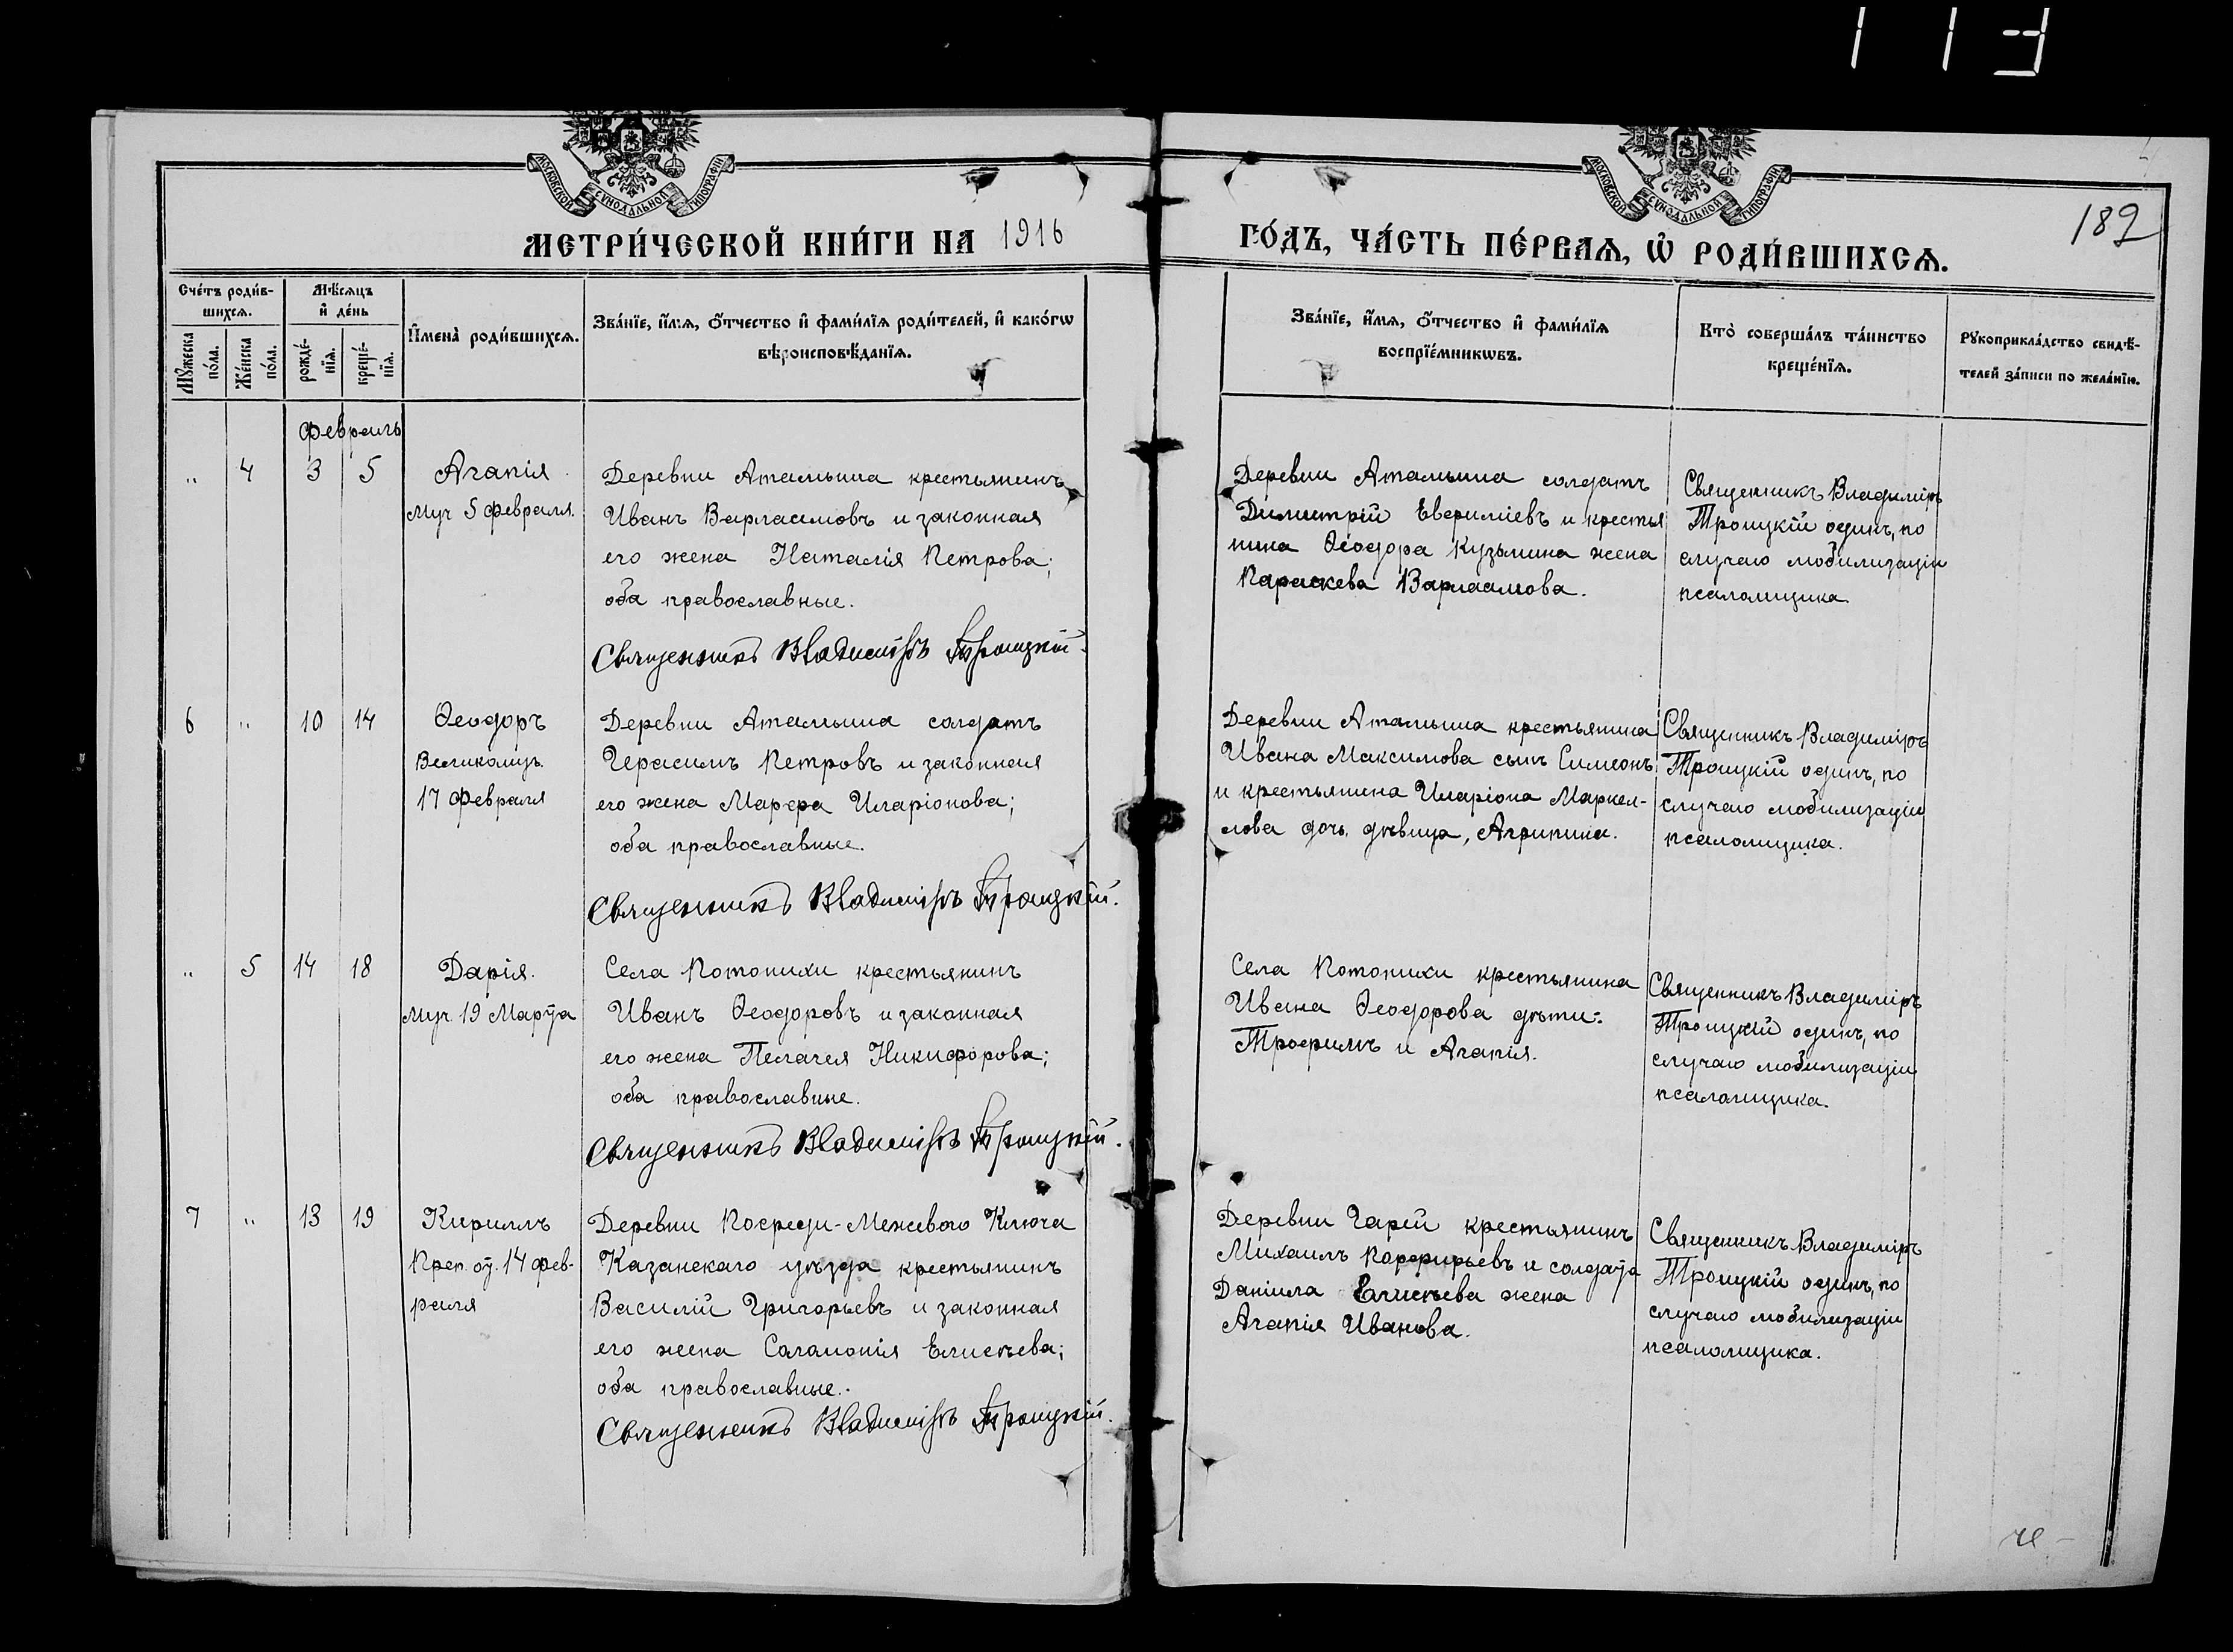 113
МОСКОВСКОЙ СУНОДАЛЬНОЙ ТИПОГРАФІИ
МОСКОВСКОЙ СУНОДАЛЬНОЙ ТИПОГРАФІИ
189
МЕТРИ́ЧЕСКОЙ КНИ́ГИ НА 1916
ГО́ДЪ, ЧА́СТЬ ПЕ́РВАѦ, Ѡ҆ РОДИ́ВШИХСѦ.
Сче́тъ роди́в-
шихсѧ.
Мꙋ́жеска
по́ла.
Же́нска
по́ла.
Мѣ́сѧцъ
и҆ де́нь
рожде́-
нїѧ.
креще́-
нїѧ.
И҆мена̀ роди́вшихсѧ.
Зва́нїе, и҆́мѧ, ѻ҆́тчество и҆ фами́лїѧ роди́телей, и҆ како́гѡ
вѣроисповѣ́данїѧ.
Зва́нїе, и҆́мѧ, ѻ҆́тчество и҆ фами́лїѧ
воспрїе́мникѡвъ.
Кто̀ соверша́лъ та́инство
креще́нїѧ.
Рꙋкоприкла́дство свидѣ́-
телей за́писи по жела́нїю.
Февраль
„ 4 3 5
Агапія
муч 5 февраля.
Деревни Аталыша крестьянинъ
Иванъ Варлаамовъ и законная
его жена Наталія Петрова;
оба православные.
Священникъ Владиміръ Троицкій.
Деревни Аталыша солдатъ
Димитрій Евфиміевъ и крестья
нина Ѳеодора Кузьмина жена
Параскева Варлаамова.
Священникъ Владиміръ
Троицкій одинъ, по
случаю мобилизаціи
псаломщика.
6 „ 10 14
Ѳеодоръ
Великомуч.
17 февраля
Деревни Аталыша солдатъ
Герасимъ Петровъ и законная
его жена Марфа Иларіонова;
оба православные.
Священникъ Владиміръ Троицкій.
Деревни Аталыша крестьянина
Ивана Максимова сынъ Симеонъ
и крестьянина Иларіона Маркел-
лова дочь, дѣвица, Агрипина.
Священникъ Владиміръ
Троицкій одинъ, по
случаю мобилизаціи
псаломщика.
„ 5 14 18
Дарія.
муч. 19 Марта
Села Потопихи крестьянинъ
Иванъ Ѳеодоровъ и законная
его жена Пелагея Никифорова;
оба православные.
Священникъ Владиміръ Троицкій.
Села Потопихи крестьянина
Ивана Ѳеодорова дѣти:
Трофимъ и Агапія.
Священникъ Владиміръ
Троицкій одинъ, по
случаю мобилизаціи
псаломщика.
7 „ 13 19
Кириллъ
Преп. от. 14 фев-
раля
Деревни Посреди-Межевого Ключа
Казанскаго уѣзда крестьянинъ
Василій Григорьевъ и законная
его жена Саламонія Елисѣева;
оба православные.
Священникъ Владиміръ Троицкій.
Деревни Гарей крестьянинъ
Михаилъ Порфирьевъ и солдата
Даніила Елисѣева жена
Агапія Иванова.
Священникъ Владиміръ
Троицкій одинъ, по
случаю мобилизаціи
псаломщика.